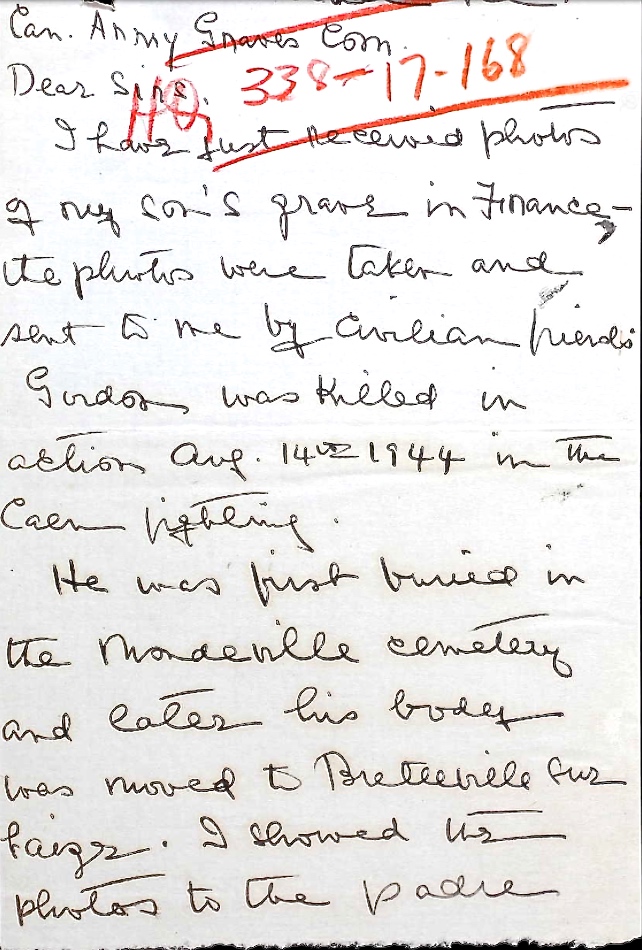 Can. Army Graves Com.
Dear Sirs,
HQ 338-17-168
I have just received photos
of my son's grave in France -
the photos were taken and
sent to me by civilian friends
Gordon was killed in
action Aug. 14th 1944 in the
Caen fighting.
He was first buried in
the Mondeville cemetery
and later his body
was moved to Bretteville Sur
Laize. I showed the
photos to the padre